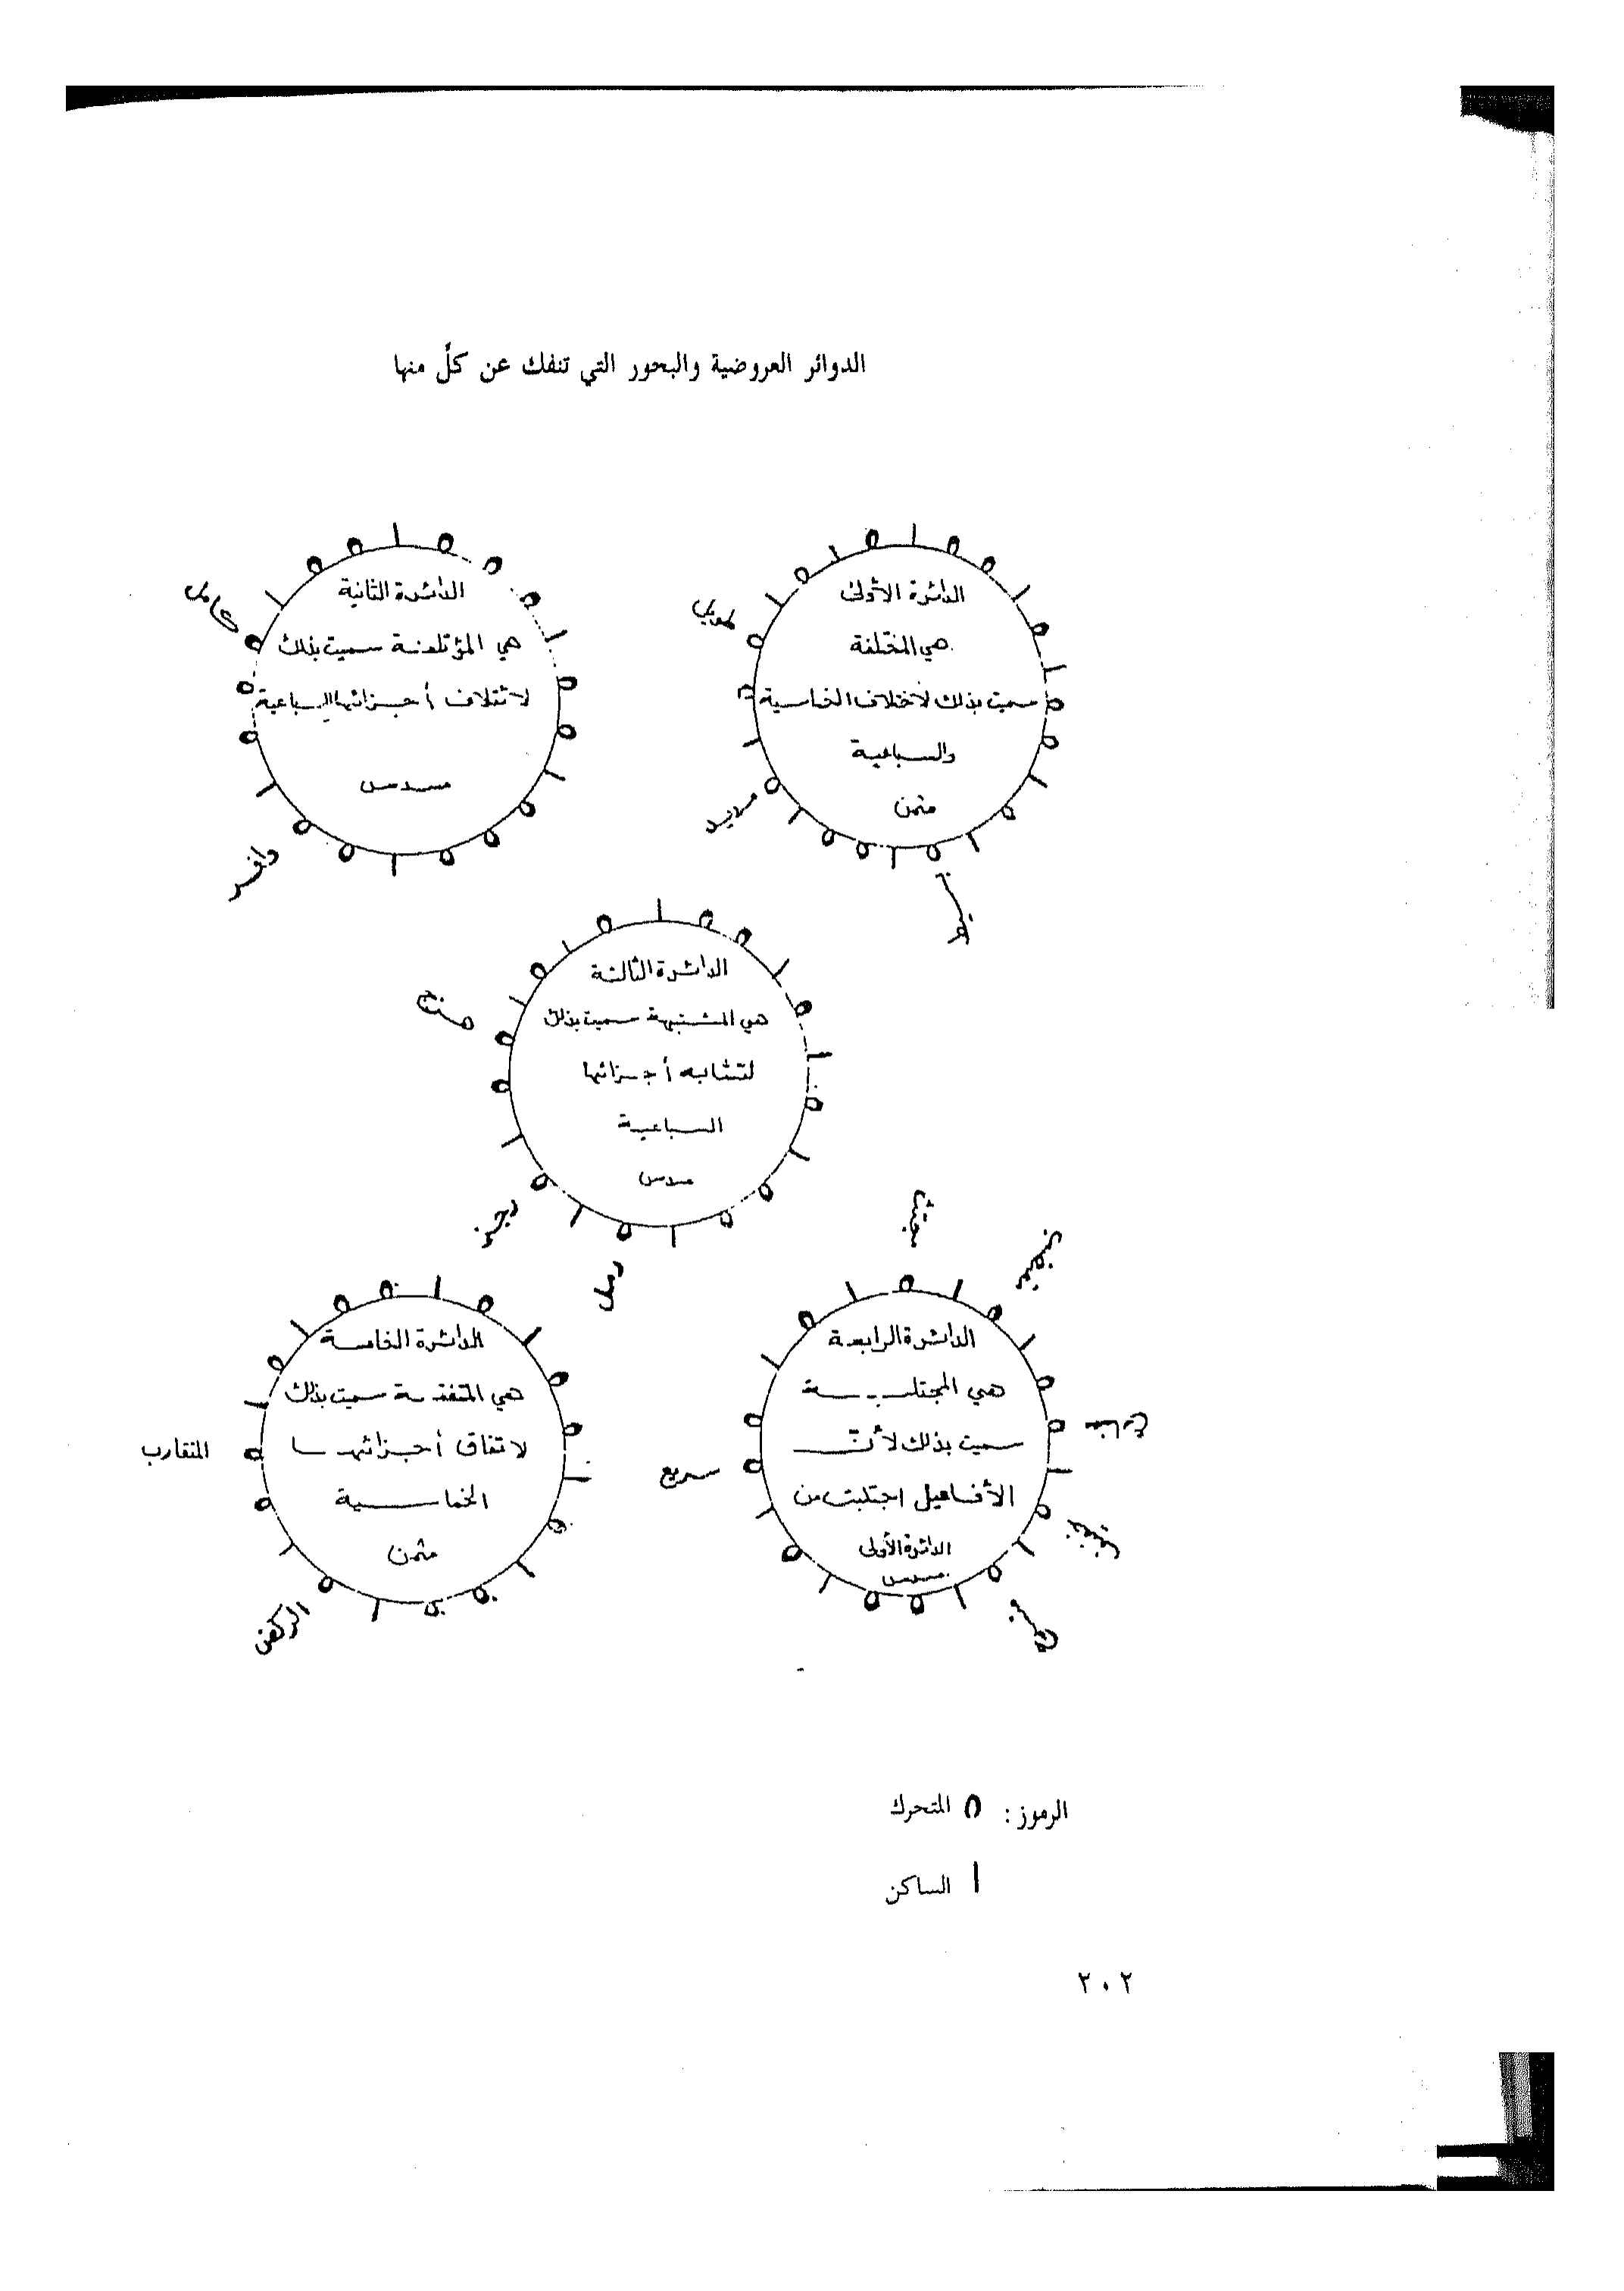 الدوائر العروضية والبحور التي تنفك عن كلّ منها
الدائرة الأولى
هي المختلفة
سميت بذلك لأختلاف الخماسية
والسباعية
مثمن
طويل
مديد
الدائرة الثانية
هي المؤتلفة سميت بذلك
لائتلاف أجزائها السباعية
مسدس
كامل
وافر
الدائرة الثالثة
هي المشتبهة سميت بذلك
لتشابه أجزائها
السباعية
مسدس
هزج
رجز
رمل
الدائرة الرابعة
هي المجتلبة
سميت بذلك لأنّ
الأفاعيل اجتلبت من
الدائرة الأولى
مسدس
مجتث
مقتضب
مضارع
خفيف
سريع
الدائرة الخامسة
هي المتفقة سميت بذلك
لاتفاق أجزائها
الخماسية
مثمن
المتقارب
الركض
الرموز : ٥ المتحرك
ا الساكن
٢٠٢